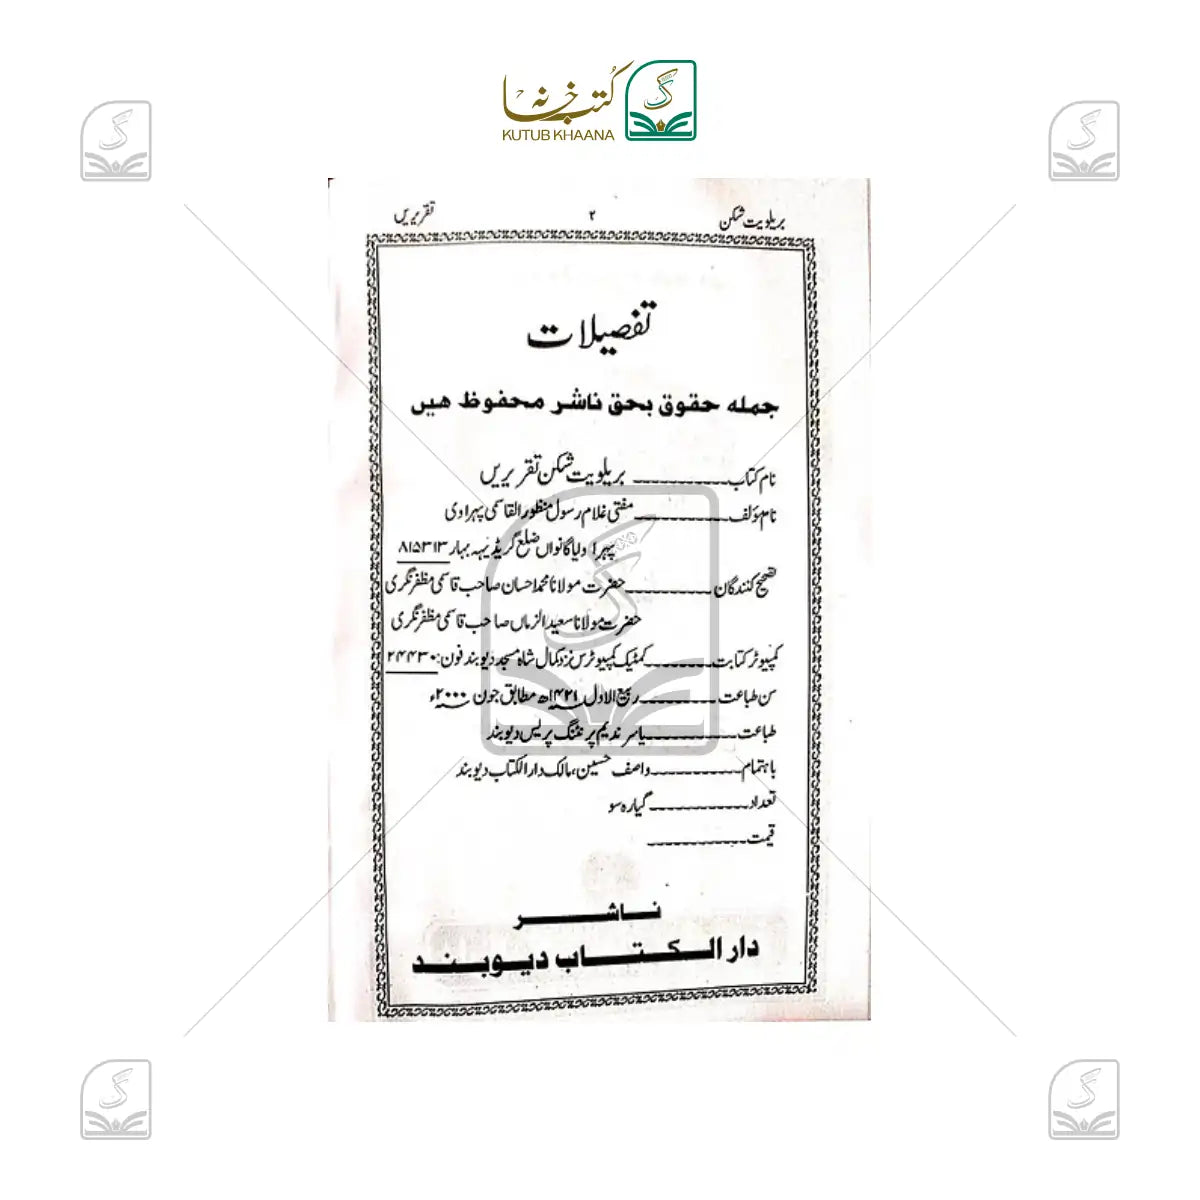 کتب خانہ
KUTUB KHAANA
بریلویت شکن ۲ تقریریں
تفصیلات
جملہ حقوق بحق ناشر محفوظ ہیں
نام کتاب ـــــــ بریلویت شکن تقریریں
نام مؤلف ـــــــ مفتی غلام رسول منظور القاسمی پہراوی
پہرا ولیا گانواں ضلع گریڈیہہ بہار ۸۱۵۳۱۳
تصحیح کنندگان ـــــــ حضرت مولانا محمد احسان صاحب قاسمی مظفرنگری
حضرت مولانا سعید الزماں صاحب قاسمی مظفرنگری
کمپیوٹر کتابت ـــــــ کمٹیک کمپیوٹرس نزد کمال شاہ مسجد دیوبند فون: ۲۴۴۳۰
سن طباعت ـــــــ ربیع الاول ۱۴۲۱ھ مطابق جون ۲۰۰۰ء
طباعت ـــــــ یاسر ندیم پرنٹنگ پریس دیوبند
باہتمام ـــــــ واصف حسین، مالک دارالکتاب دیوبند
تعداد ـــــــ گیارہ سو
قیمت ـــــــ
ناشر
دار الکتاب دیوبند